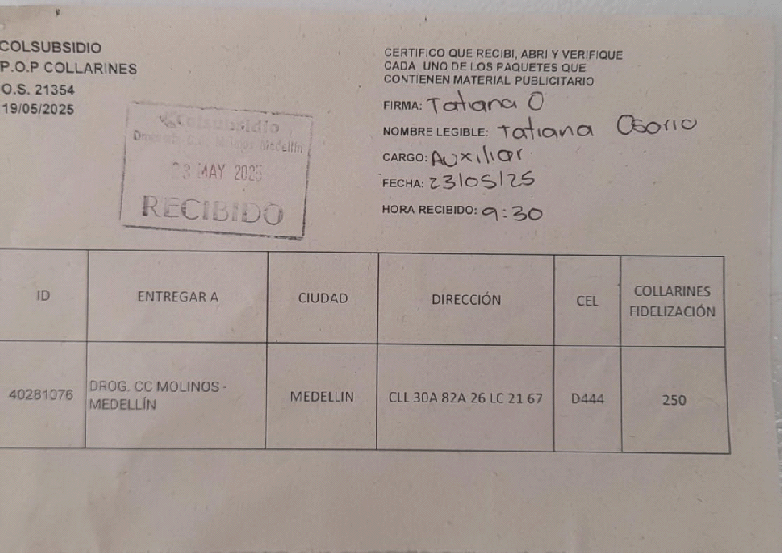 COLSUBSIDIO
P.O.P COLLARINES
O.S. 21354
19/05/2025
Colsubsidio
Medellín
23 MAY 2025
RECIBIDO
CERTIFICO QUE RECIBI, ABRI Y VERIFIQUE
CADA UNO DE LOS PAQUETES QUE
CONTIENEN MATERIAL PUBLICITARIO
FIRMA: Tatiana O
NOMBRE LEGIBLE: Tatiana Osorio
CARGO: Auxiliar
FECHA: 23/05/25
HORA RECIBIDO: 9:30
ID ENTREGAR A CIUDAD DIRECCIÓN CEL COLLARINES FIDELIZACIÓN
40281076 DROG. CC MOLINOS - MEDELLÍN MEDELLIN CLL 30A 82A 26 LC 21 67 D444 250